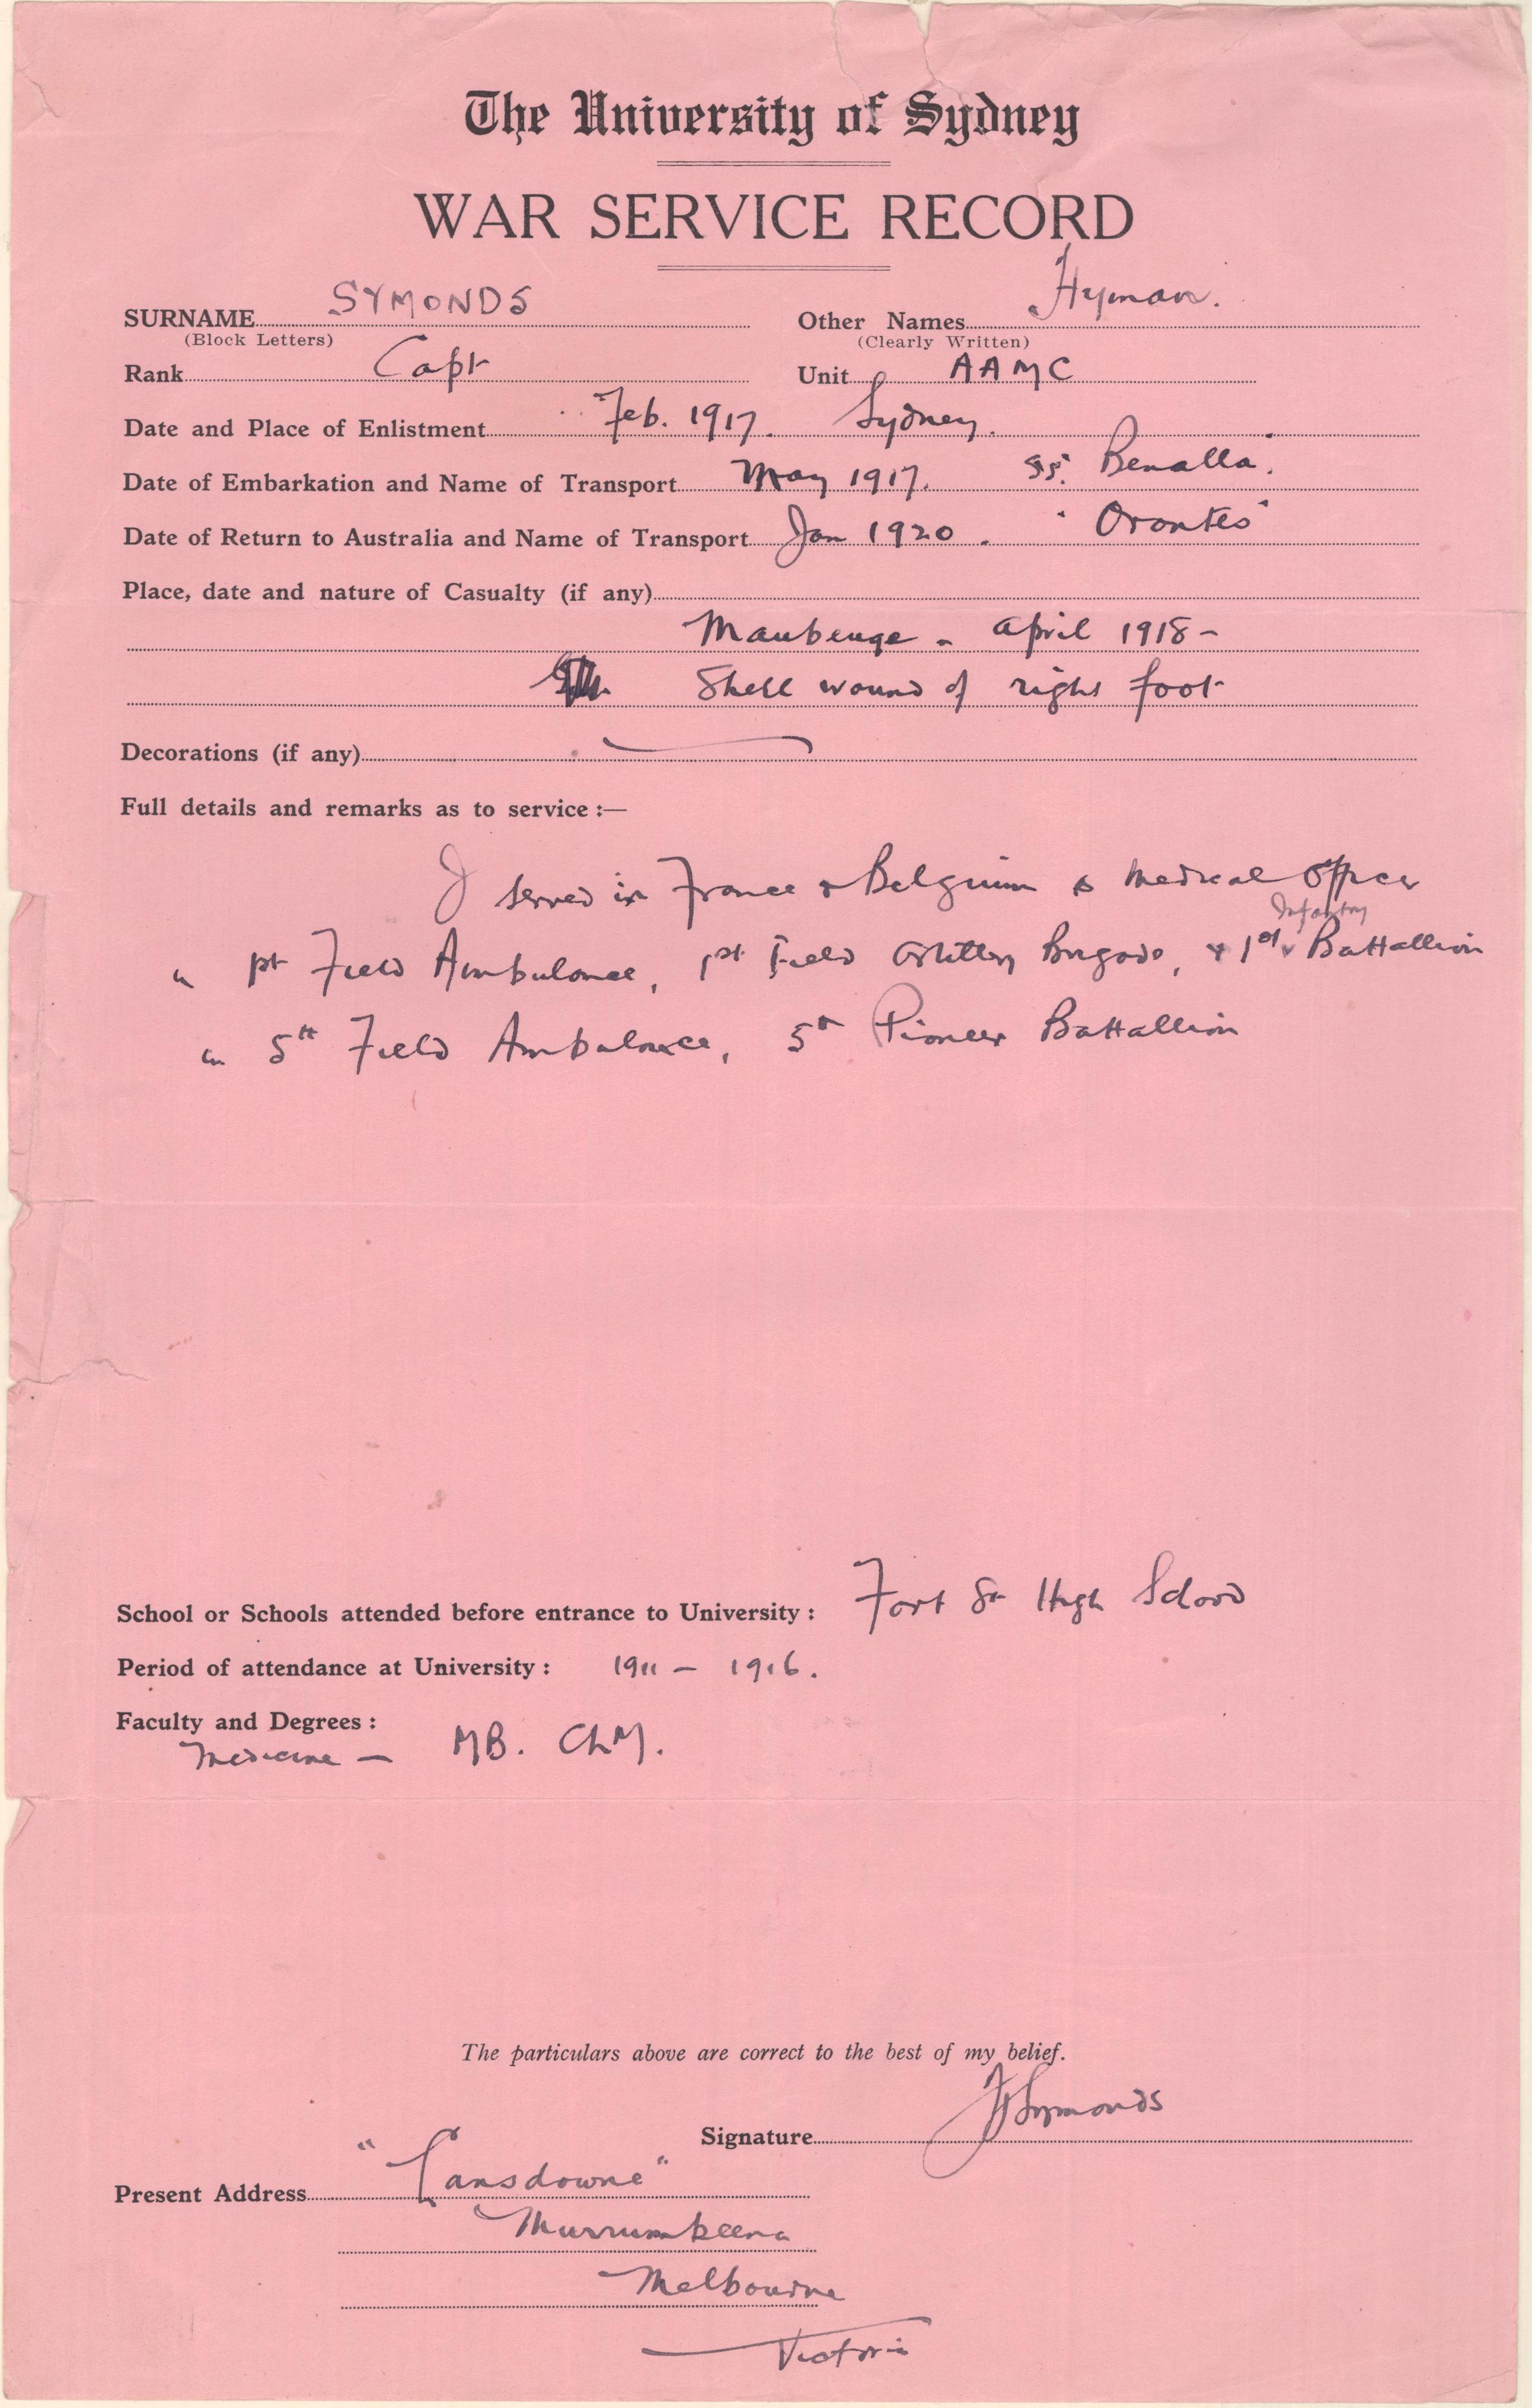 The University of Sydney
WAR SERVICE RECORD
SURNAME SYMONDS Other Names Hyman.
(Block Letters) (Clearly Written)
Rank Capt Unit AAMC
Date and Place of Enlistment Feb. 1917. Sydney.
Date of Embarkation and Name of Transport May 1917. SS. Benalla.
Date of Return to Australia and Name of Transport Jan 1920. "Orontes"
Place, date and nature of Casualty (if any)
Maubeuge - April 1918 -
Shell wound of right foot
Decorations (if any)
Full details and remarks as to service :—
I served in France & Belgium as Medical Officer
Infantry
in 1st Field Ambulance, 1st Field Artillery Brigade, & 1st Battallion
in 5th Field Ambulance, 5th Pioneer Battallion
School or Schools attended before entrance to University : Fort St High School
Period of attendance at University : 1911 - 1916.
Faculty and Degrees :
Medicine - MB. ChM.
The particulars above are correct to the best of my belief.
Signature HSymonds
Present Address "Lansdowne"
Murrumbeena
Melbourne
Victoria